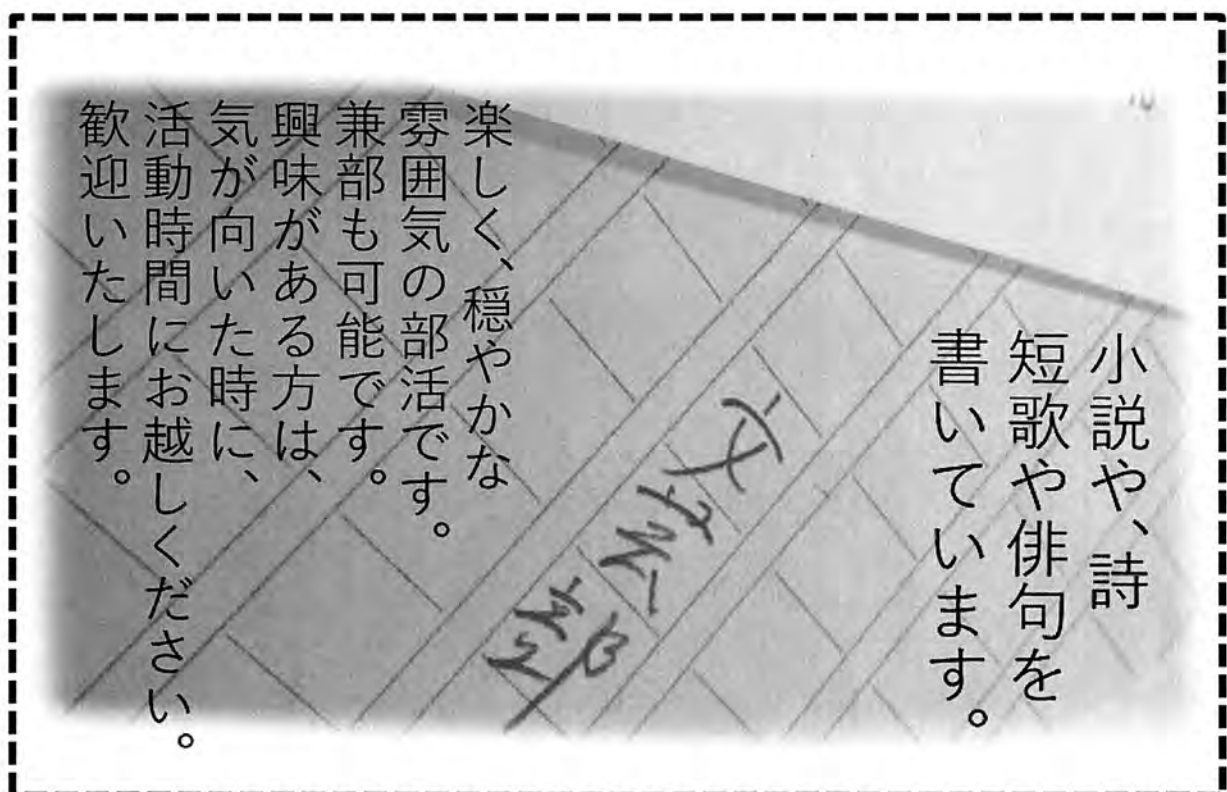 小説や、詩
短歌や俳句を
書いています。
文芸部
楽しく、穏やかな
雰囲気の部活です。
兼部も可能です。
興味がある方は、
気が向いた時に、
活動時間にお越しください。
歓迎いたします。